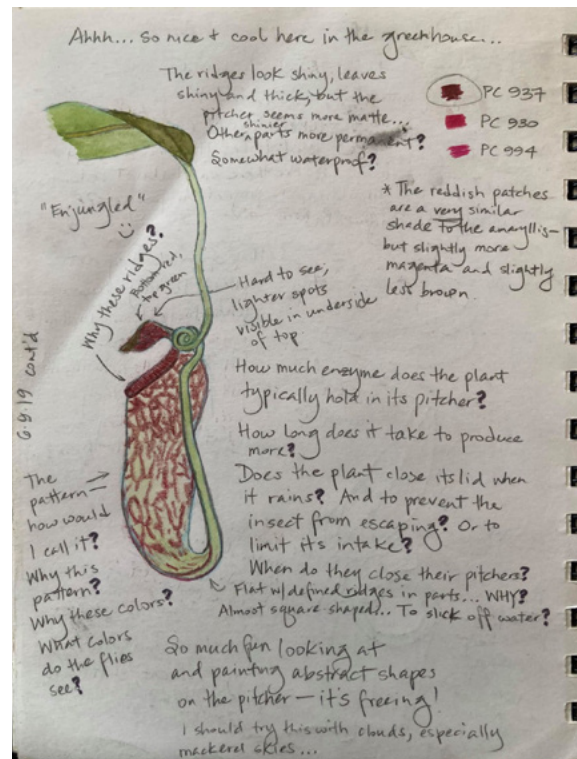 Ahhh... So nice + cool here in the greenhouse...
The ridges look shiny, leaves
shiny and thick, but the
pitcher seems more matte...
Other shinier parts more permanent?
Somewhat waterproof?
PC 937
PC 930
PC 994
* The reddish patches
are a very similar
shade to the amaryllis—
but slightly more
magenta and slightly
less brown.
"Enjungled"
Why these ridges?
Bottom red,
top green
Hard to see,
lighter spots
visible in underside
of top
6.9.19 cont'd
How much enzyme does the plant
typically hold in its pitcher?
How long does it take to produce
more?
Does the plant close its lid when
it rains? And to prevent the
insect from escaping? Or to
limit it's intake?
When do they close their pitchers?
Flat w/ defined ridges in parts... WHY?
Almost square shaped... To slick off water?
The
pattern—
how would
I call it?
Why this
pattern?
Why these colors?
What colors
do the flies
see?
So much fun looking at
and painting abstract shapes
on the pitcher — it's freeing!
I should try this with clouds, especially
mackerel skies...